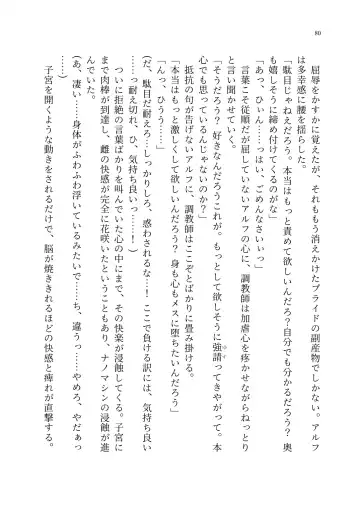 80
屈辱をかすかに覚えたが、それももう消えかけたプライドの副産物でしかない。アルフ
は多幸感に腰を揺らした。
「駄目じゃねえだろう。本当はもっと責めて欲しいんだろ？自分でも分かるだろう？奥
も嬉しそうに締め付けてくるのがな」
「あっ、ひぃん……っはい、ごめんなさいぃっ」
言葉こそ従順だが屈していないアルフの心に、調教師は加虐心を疼かせながらねっとり
と言い聞かせていく。
「そうだろう？好きなんだろうこれが。もっとして欲しそうに強請ってきやがって。本
心でも思っているんじゃないのか？」
「んっ、ひうう……っ」
抵抗の句が告げないアルフに、調教師はここぞとばかりに畳み掛ける。
「本当はもっと激しくして欲しいんだろう？身も心もメスに堕ちたいんだろう」
（だ、駄目だ耐えろ…しっかりしろ、惑わされるな…！ここで負ける訳には、気持ち良い
……っ耐え切れ、ひ、気持ち良いっ……！）
ついに拒絶の言葉ばかりを叫んでいた心の中にまで、その快楽が浸蝕していく。子宮に
まで肉棒が到達し、雌の快感が完全に花咲いたということもあり、ナノマシンの浸蝕が進
んでいた。
（あ、凄い……身体がふわふわ浮いているみたいで……ち、違うっ……やめろ、やだぁっ
……っ）
子宮を開くような動きをされるだけで、脳が焼ききれるほどの快感と痺れが直撃する。